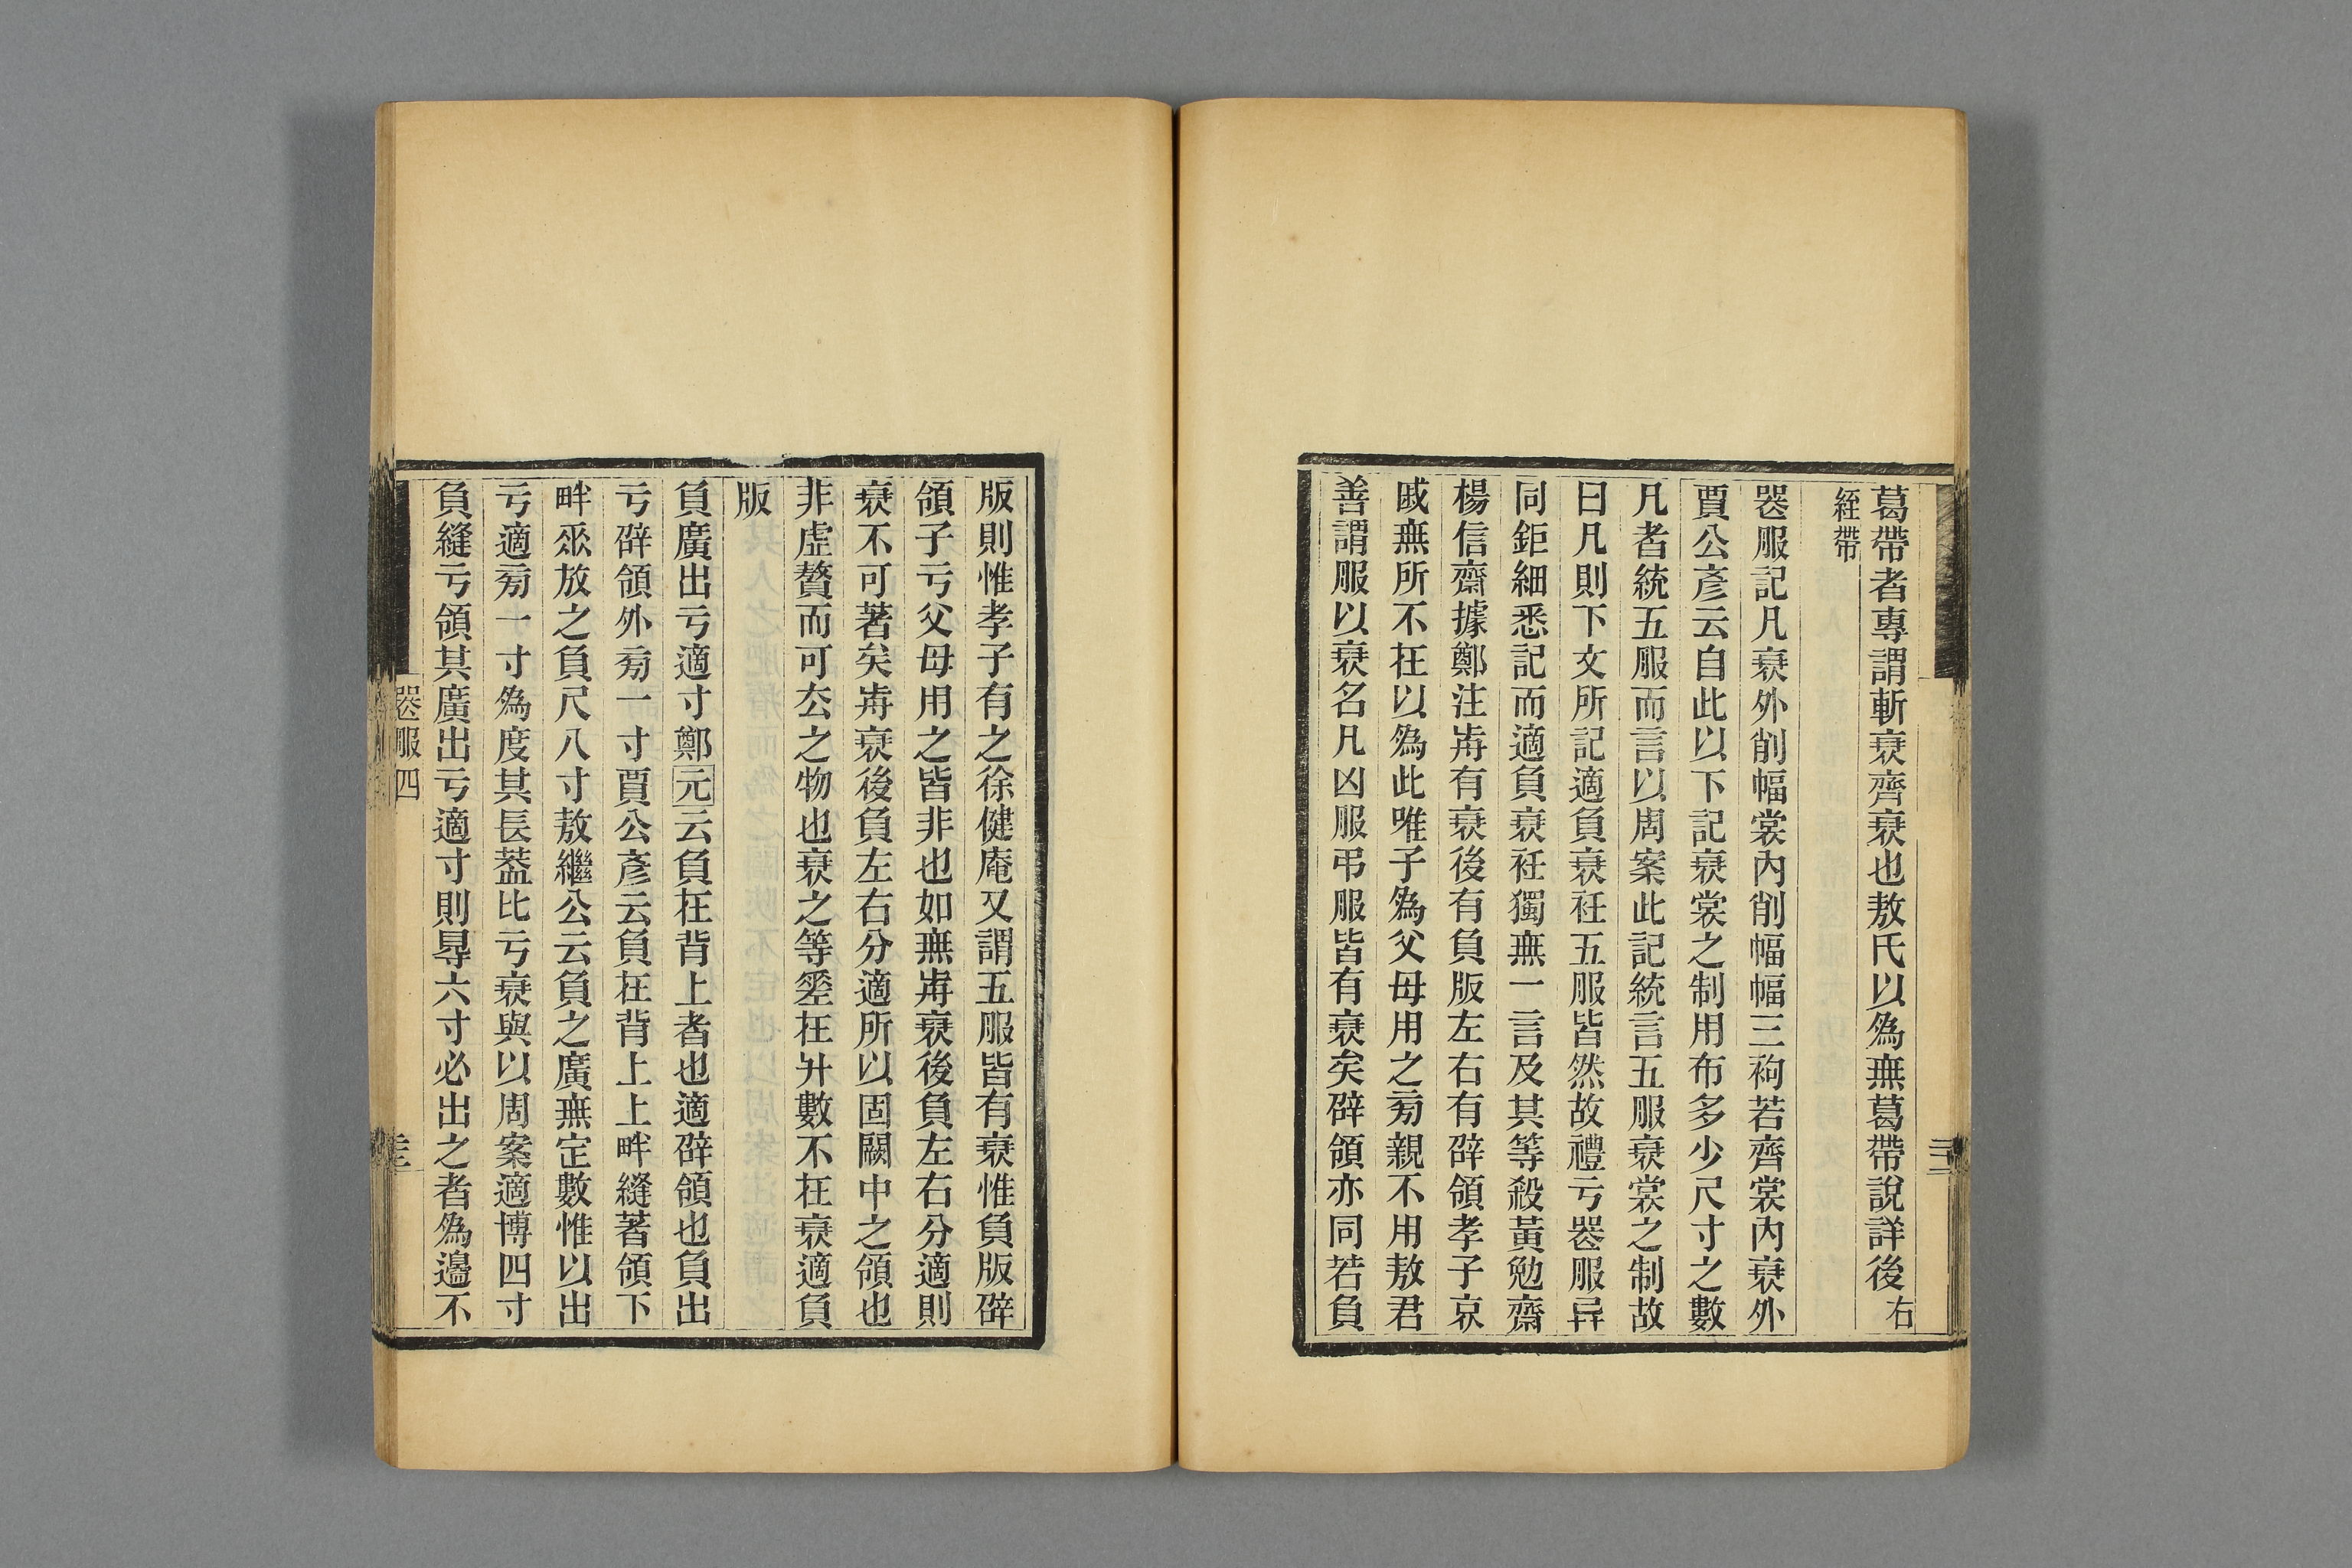 葛帶者專謂斬衰齊衰也敖氏以爲無葛帶說詳後右
絰帶
喪服記凡衰外削幅裳內削幅幅三袧若齊裳內衰外
賈公彥云自此以下記衰裳之制用布多少尺寸之數
凡者統五服而言以周案此記統言五服衰裳之制故
曰凡則下文所記適負衰衽五服皆然故禮亏喪服異
同鉅細悉記而適負衰衽獨無一言及其等殺黃勉齋
楊信齋據鄭注歬有衰後有負版左右有辟領孝子哀
戚無所不在以爲此唯子爲父母用之菊親不用敖君
善謂服以衰名凡凶服弔服皆有衰矣辟領亦同若負
版則惟孝子有之徐健庵又謂五服皆有衰惟負版辟
領子亏父母用之皆非也如無歬衰後負左右分適則
衰不可著矣歬衰後負左右分適所以固闕中之領也
非虛贅而可厺之物也衰之等差在升數不在衰適負
版
負廣出亏適寸鄭元云負在背上者也適辟領也負出
亏辟領外菊一寸賈公彥云負在背上上畔縫著領下
畔巫放之負尺八寸敖繼公云負之廣無定數惟以出
亏適菊一寸爲度其長葢比亏衰與以周案適博四寸
負縫亏領其廣出亏適寸則㝵六寸必出之者爲邊不
喪服四